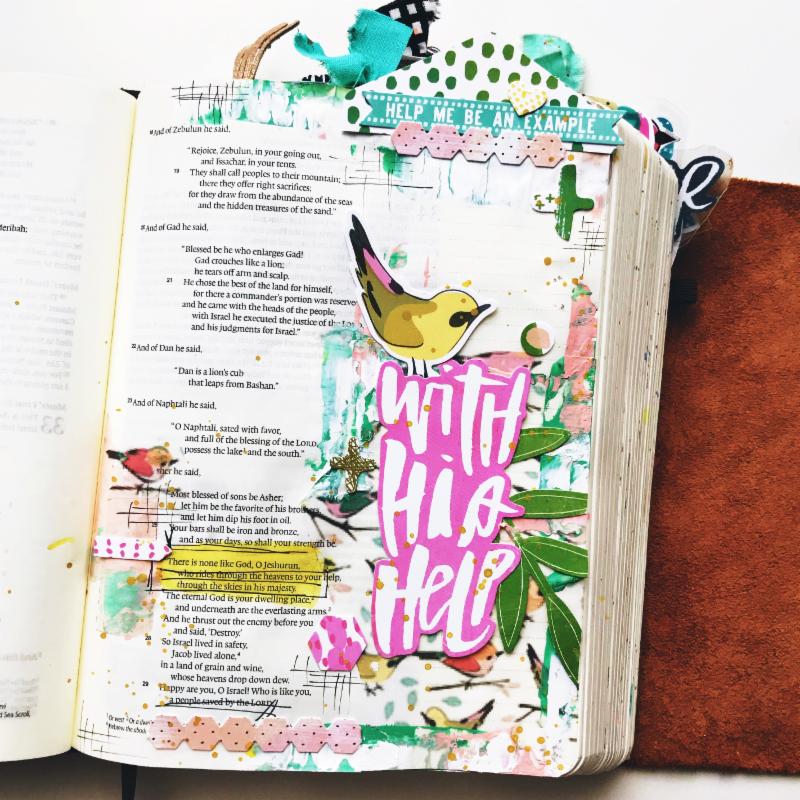 HELP ME BE AN EXAMPLE
18And of Zebulun he said,
"Rejoice, Zebulun, in your going out,
and Issachar, in your tents.
19 They shall call peoples to their mountain;
there they offer right sacrifices;
for they draw from the abundance of the seas
and the hidden treasures of the sand."
20And of Gad he said,
"Blessed be he who enlarges Gad!
Gad crouches like a lion;
he tears off arm and scalp.
21 He chose the best of the land for himself,
for there a commander's portion was reserve
and he came with the heads of the people,
with Israel he executed the justice of the LO
and his judgments for Israel."
22And of Dan he said,
"Dan is a lion's cub
that leaps from Bashan."
23And of Naphtali he said,
"O Naphtali, sated with favor,
and full of the blessing of the LORD,
possess the lake and the south."
sher he said,
"Most blessed of sons be Asher;
let him be the favorite of his brothers,
and let him dip his foot in oil.
25 Your bars shall be iron and bronze,
and as your days, so shall your strength be.
"There is none like God, O Jeshurun,
who rides through the heavens to your help,
through the skies in his majesty.
The eternal God is your dwelling place,
and underneath are the everlasting arms.
And he thrust out the enemy before you
and said, 'Destroy.'
28 So Israel lived in safety,
Jacob lived alone,4
in a land of grain and wine,
whose heavens drop down dew.
29 Happy are you, O Israel! Who is like you,
a people saved by the LORD,
WITH
HIS
HELP
Meribah;
33